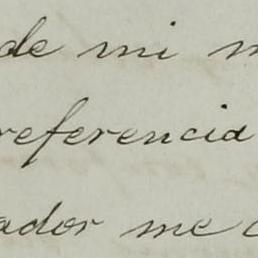 de mi m
referencia
ador me c